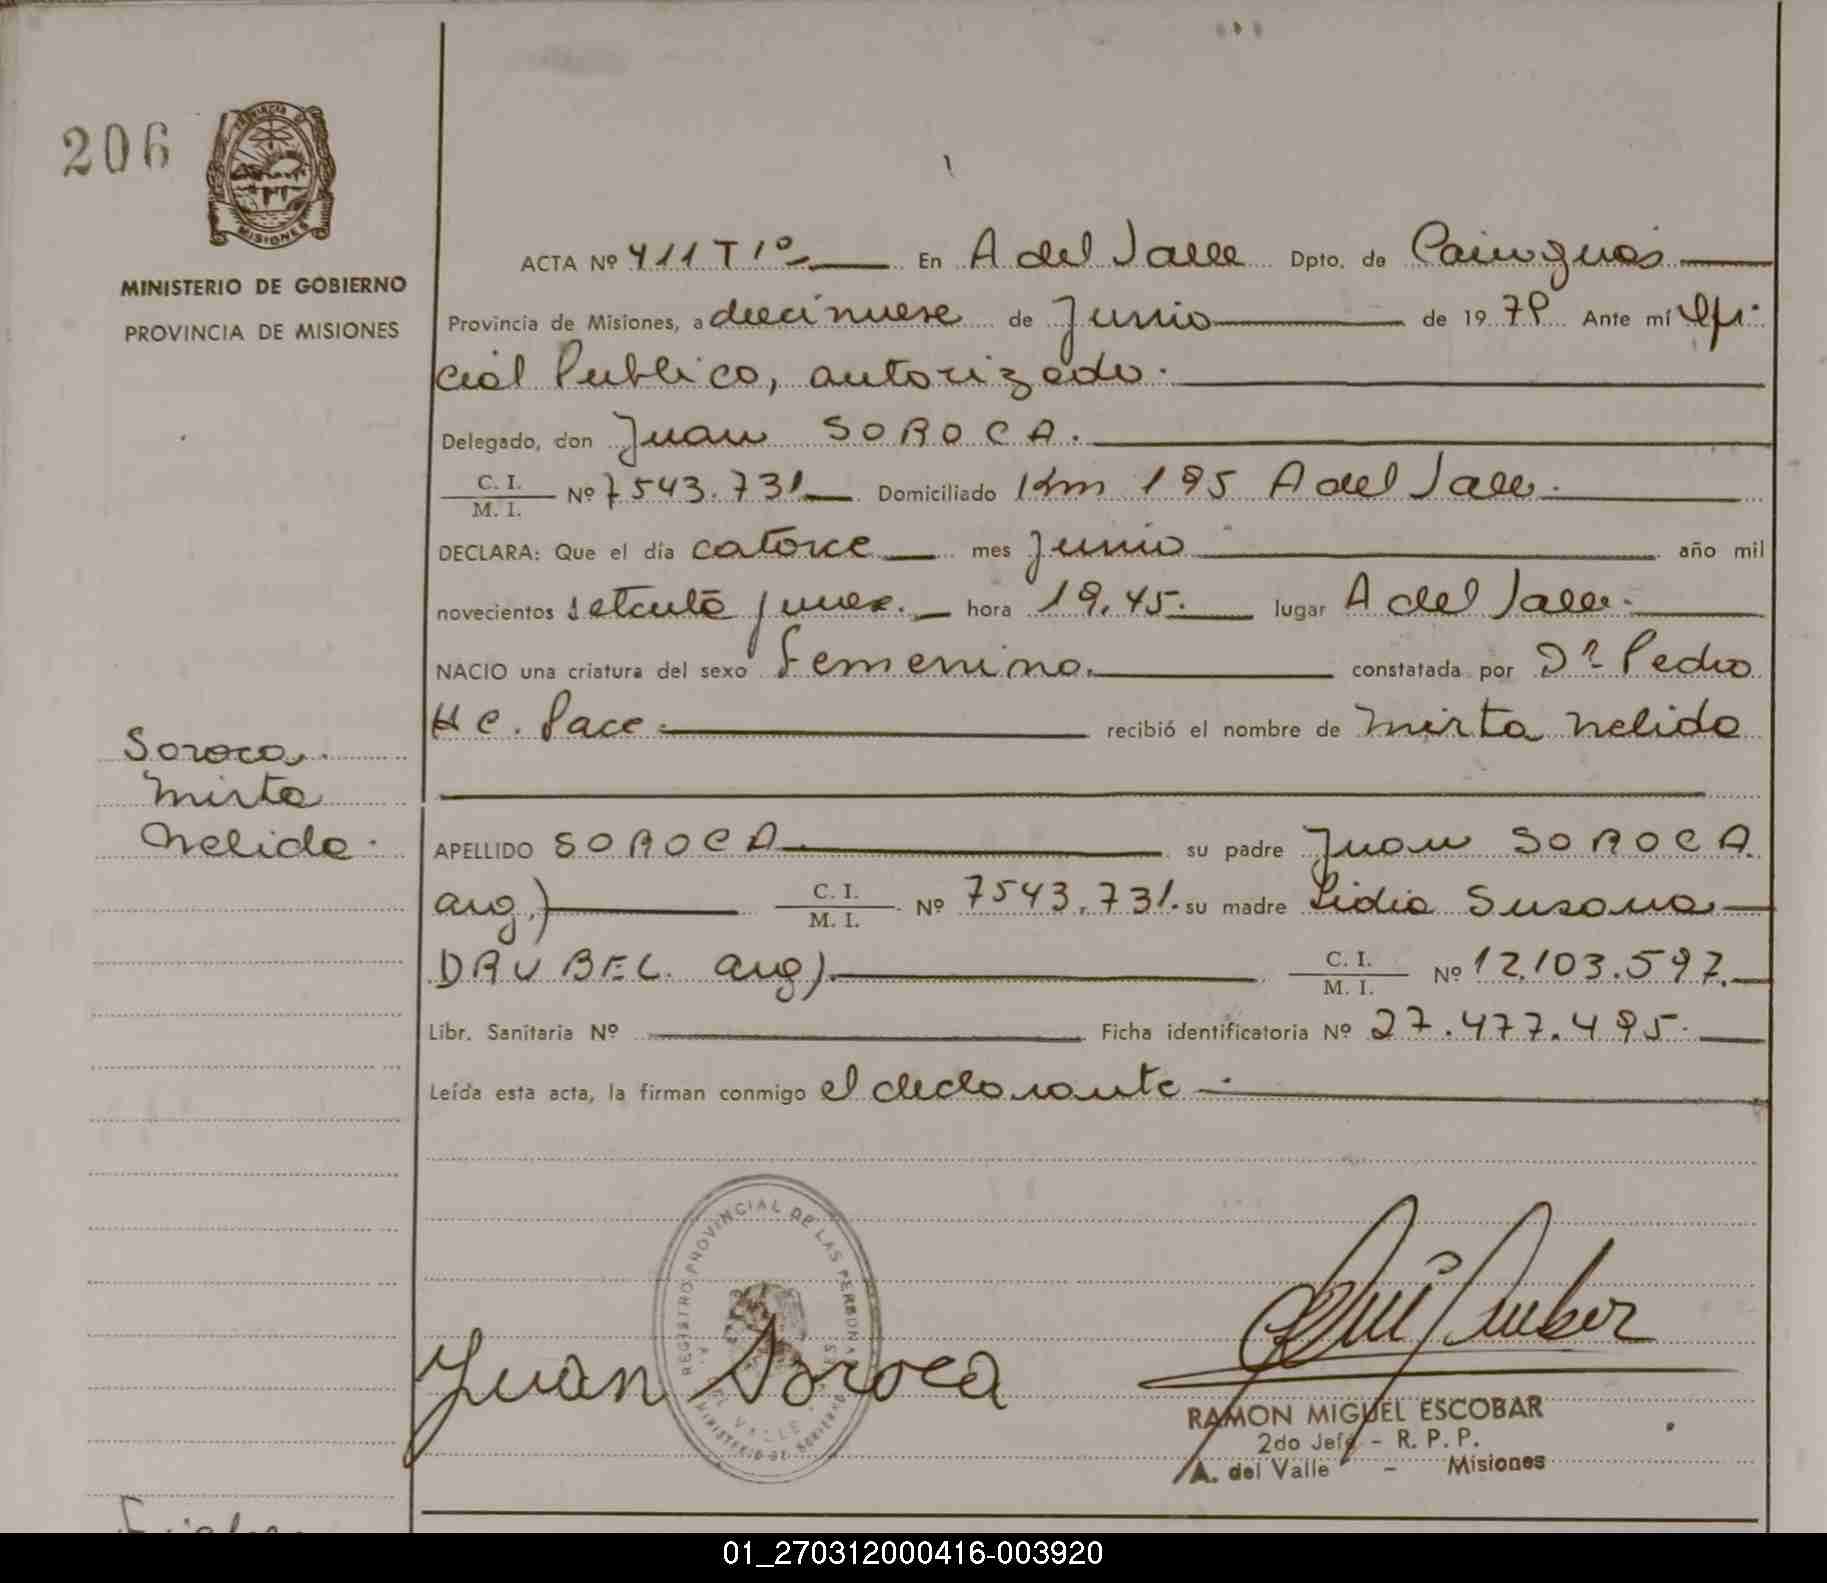 206
PROVINCIA DE
MISIONES
MINISTERIO DE GOBIERNO
PROVINCIA DE MISIONES
ACTA Nº 411 Tº 1º En A del Valle Dpto. de Cainguás
Provincia de Misiones, a diecinueve de Junio de 1979 Ante mí Ofi-
cial Publico, autorizado.
Delegado, don Juan SOROCA.
C. I. / M. I. Nº 7543.731 Domiciliado Km 195 A del Valle.
DECLARA: Que el día catorce mes Junio año mil
novecientos setenta y nueve. hora 19,45. lugar A del Valle.
NACIO una criatura del sexo Femenino. constatada por Dr Pedro
H C. Pace. recibió el nombre de Mirta Nelida
Soroca.
Mirta
Nelida.
APELLIDO SOROCA. su padre Juan SOROCA.
arg.) C. I. / M. I. Nº 7543.731. su madre Lidia Susana
DRUBEL. arg) C. I. / M. I. Nº 12.103.597.
Libr. Sanitaria Nº Ficha identificatoria Nº 27.477.495.
Leída esta acta, la firman conmigo el declarante.
REGISTRO PROVINCIAL DE LAS PERSONAS
A. DEL VALLE
MINISTERIO DE GOBIERNO
Juan Soroca
RAMON MIGUEL ESCOBAR
2do Jefe - R. P. P.
A. del Valle - Misiones
01_270312000416-003920